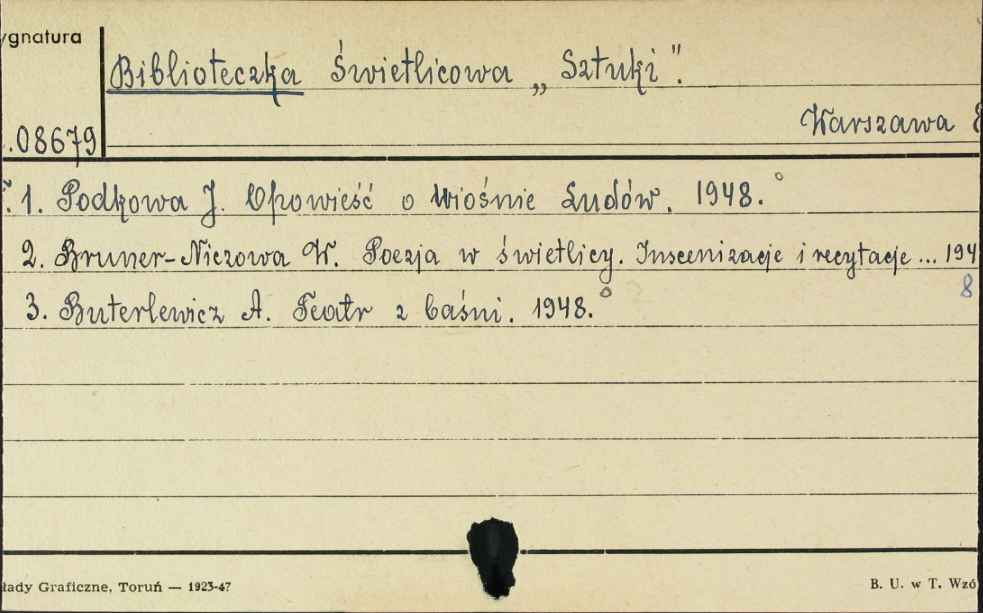 ygnatura
Biblioteczka Świetlicowa „Sztuki".
Warszawa
.08679
1. Podkowa J. Opowieść o Wiośnie Ludów. 1948.°
2. Bruner-Niczowa W. Poezja w świetlicy. Inscenizacje i recytacje... 194
8
3. Buterlewicz A. Teatr z baśni. 1948.°
łady Graficzne, Toruń — 1923-47
B. U. w T. Wzó